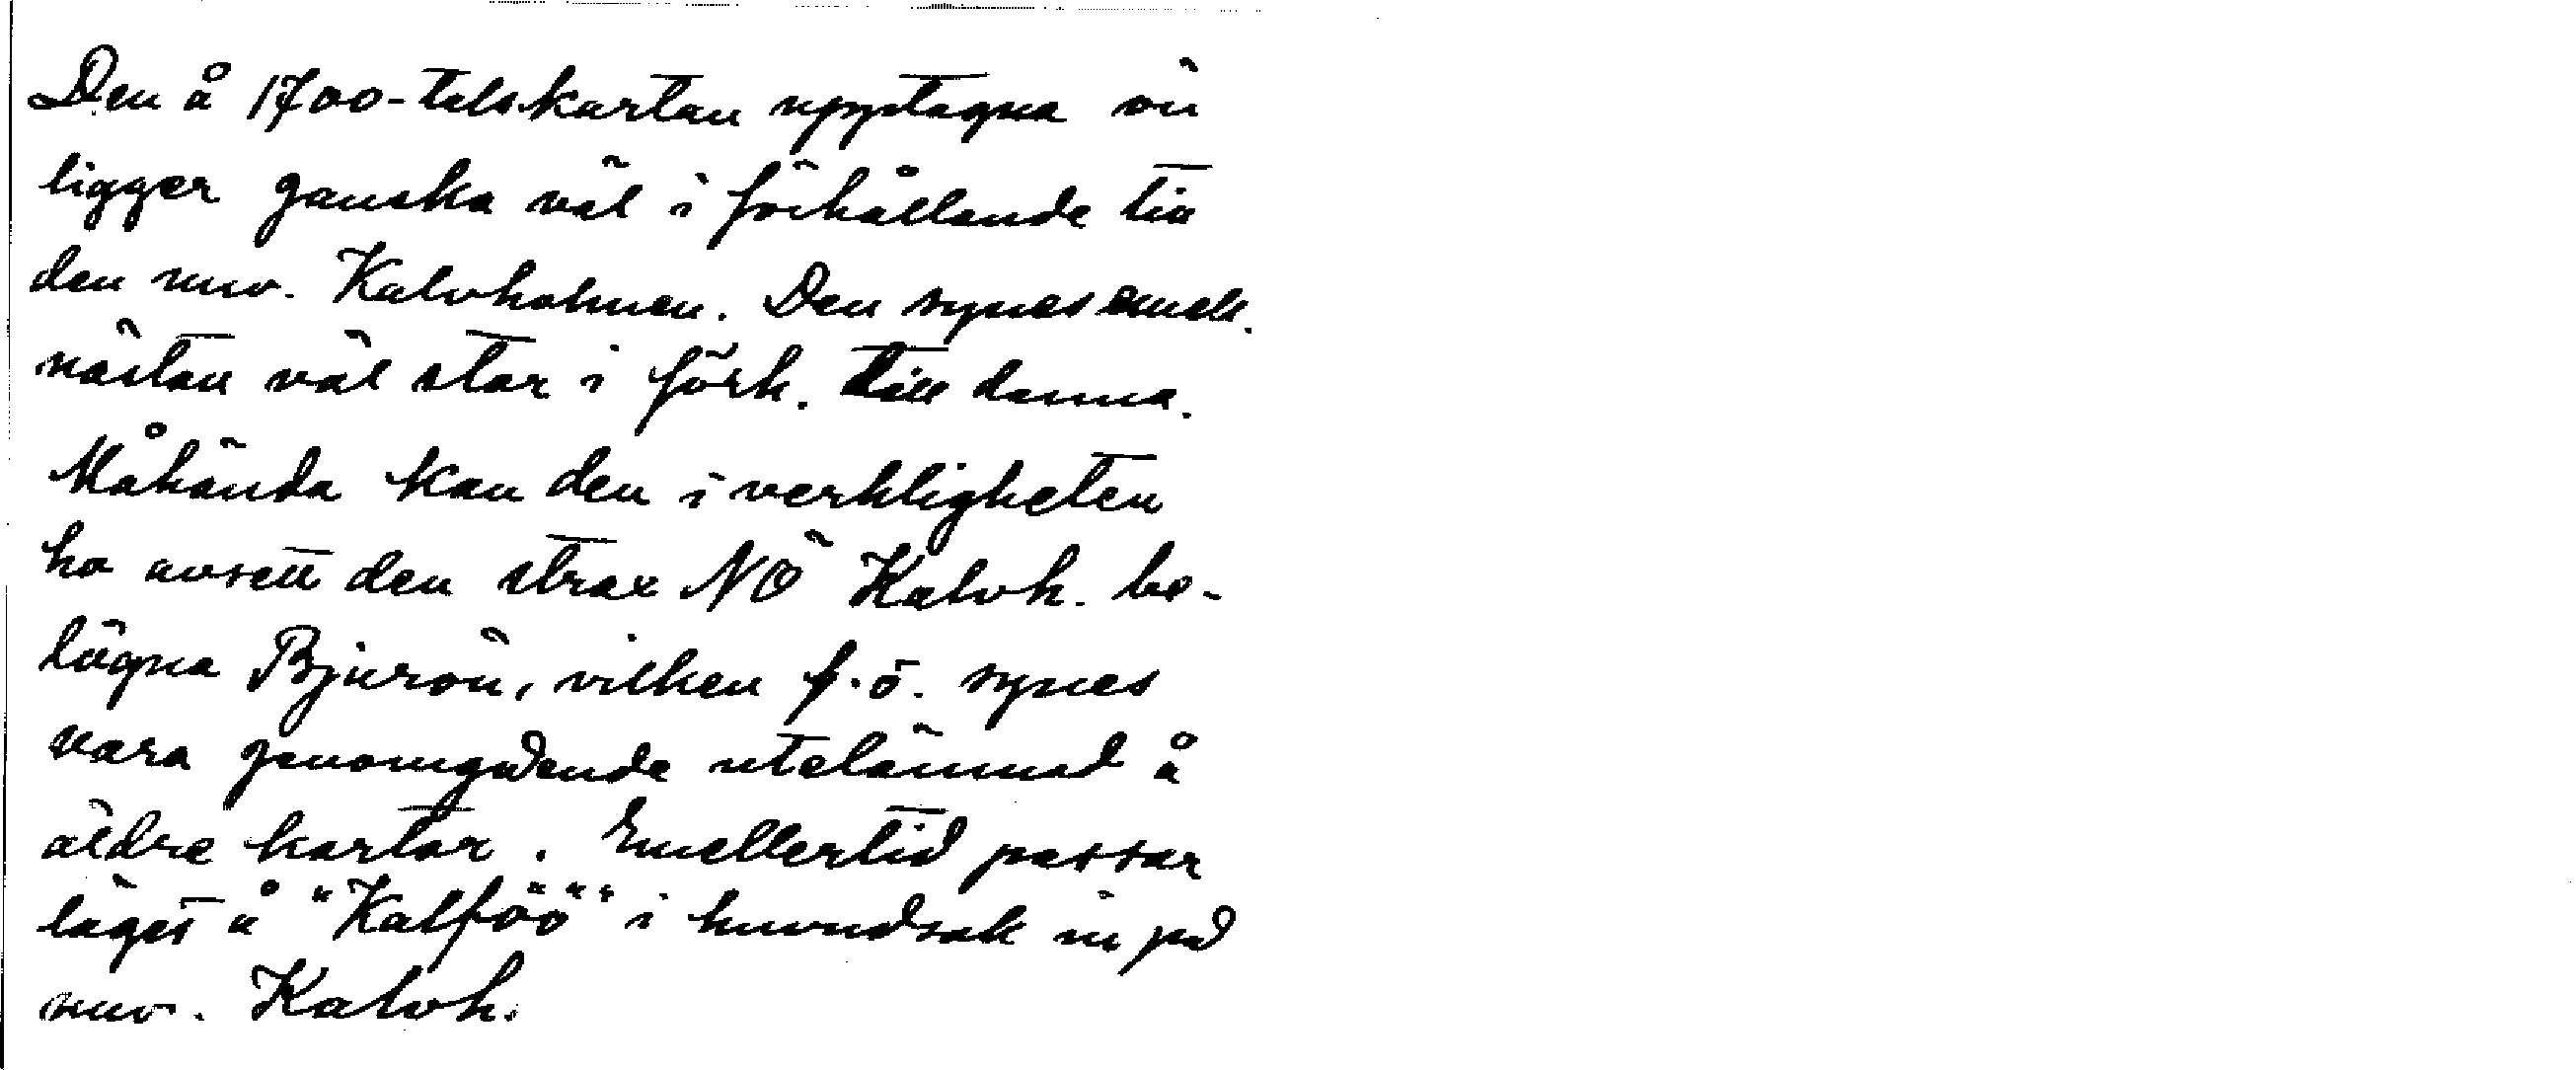 Den å 1700-talskartan upptagna ön
ligger ganska väl i förhållande till
den nuv. Kalvholmen. Den synes emell.
nästan väl stor i förh. till denna.
Måhända kan den i verkligheten
ha avsett den strax NÖ Kalvh. be-
lägna Bjurön, vilken f.ö. synes
vara genomgående utelämnad å
äldre kartor. Emellertid passar
läget å "Kalföö" i huvudsak in på
nuv. Kalvh.